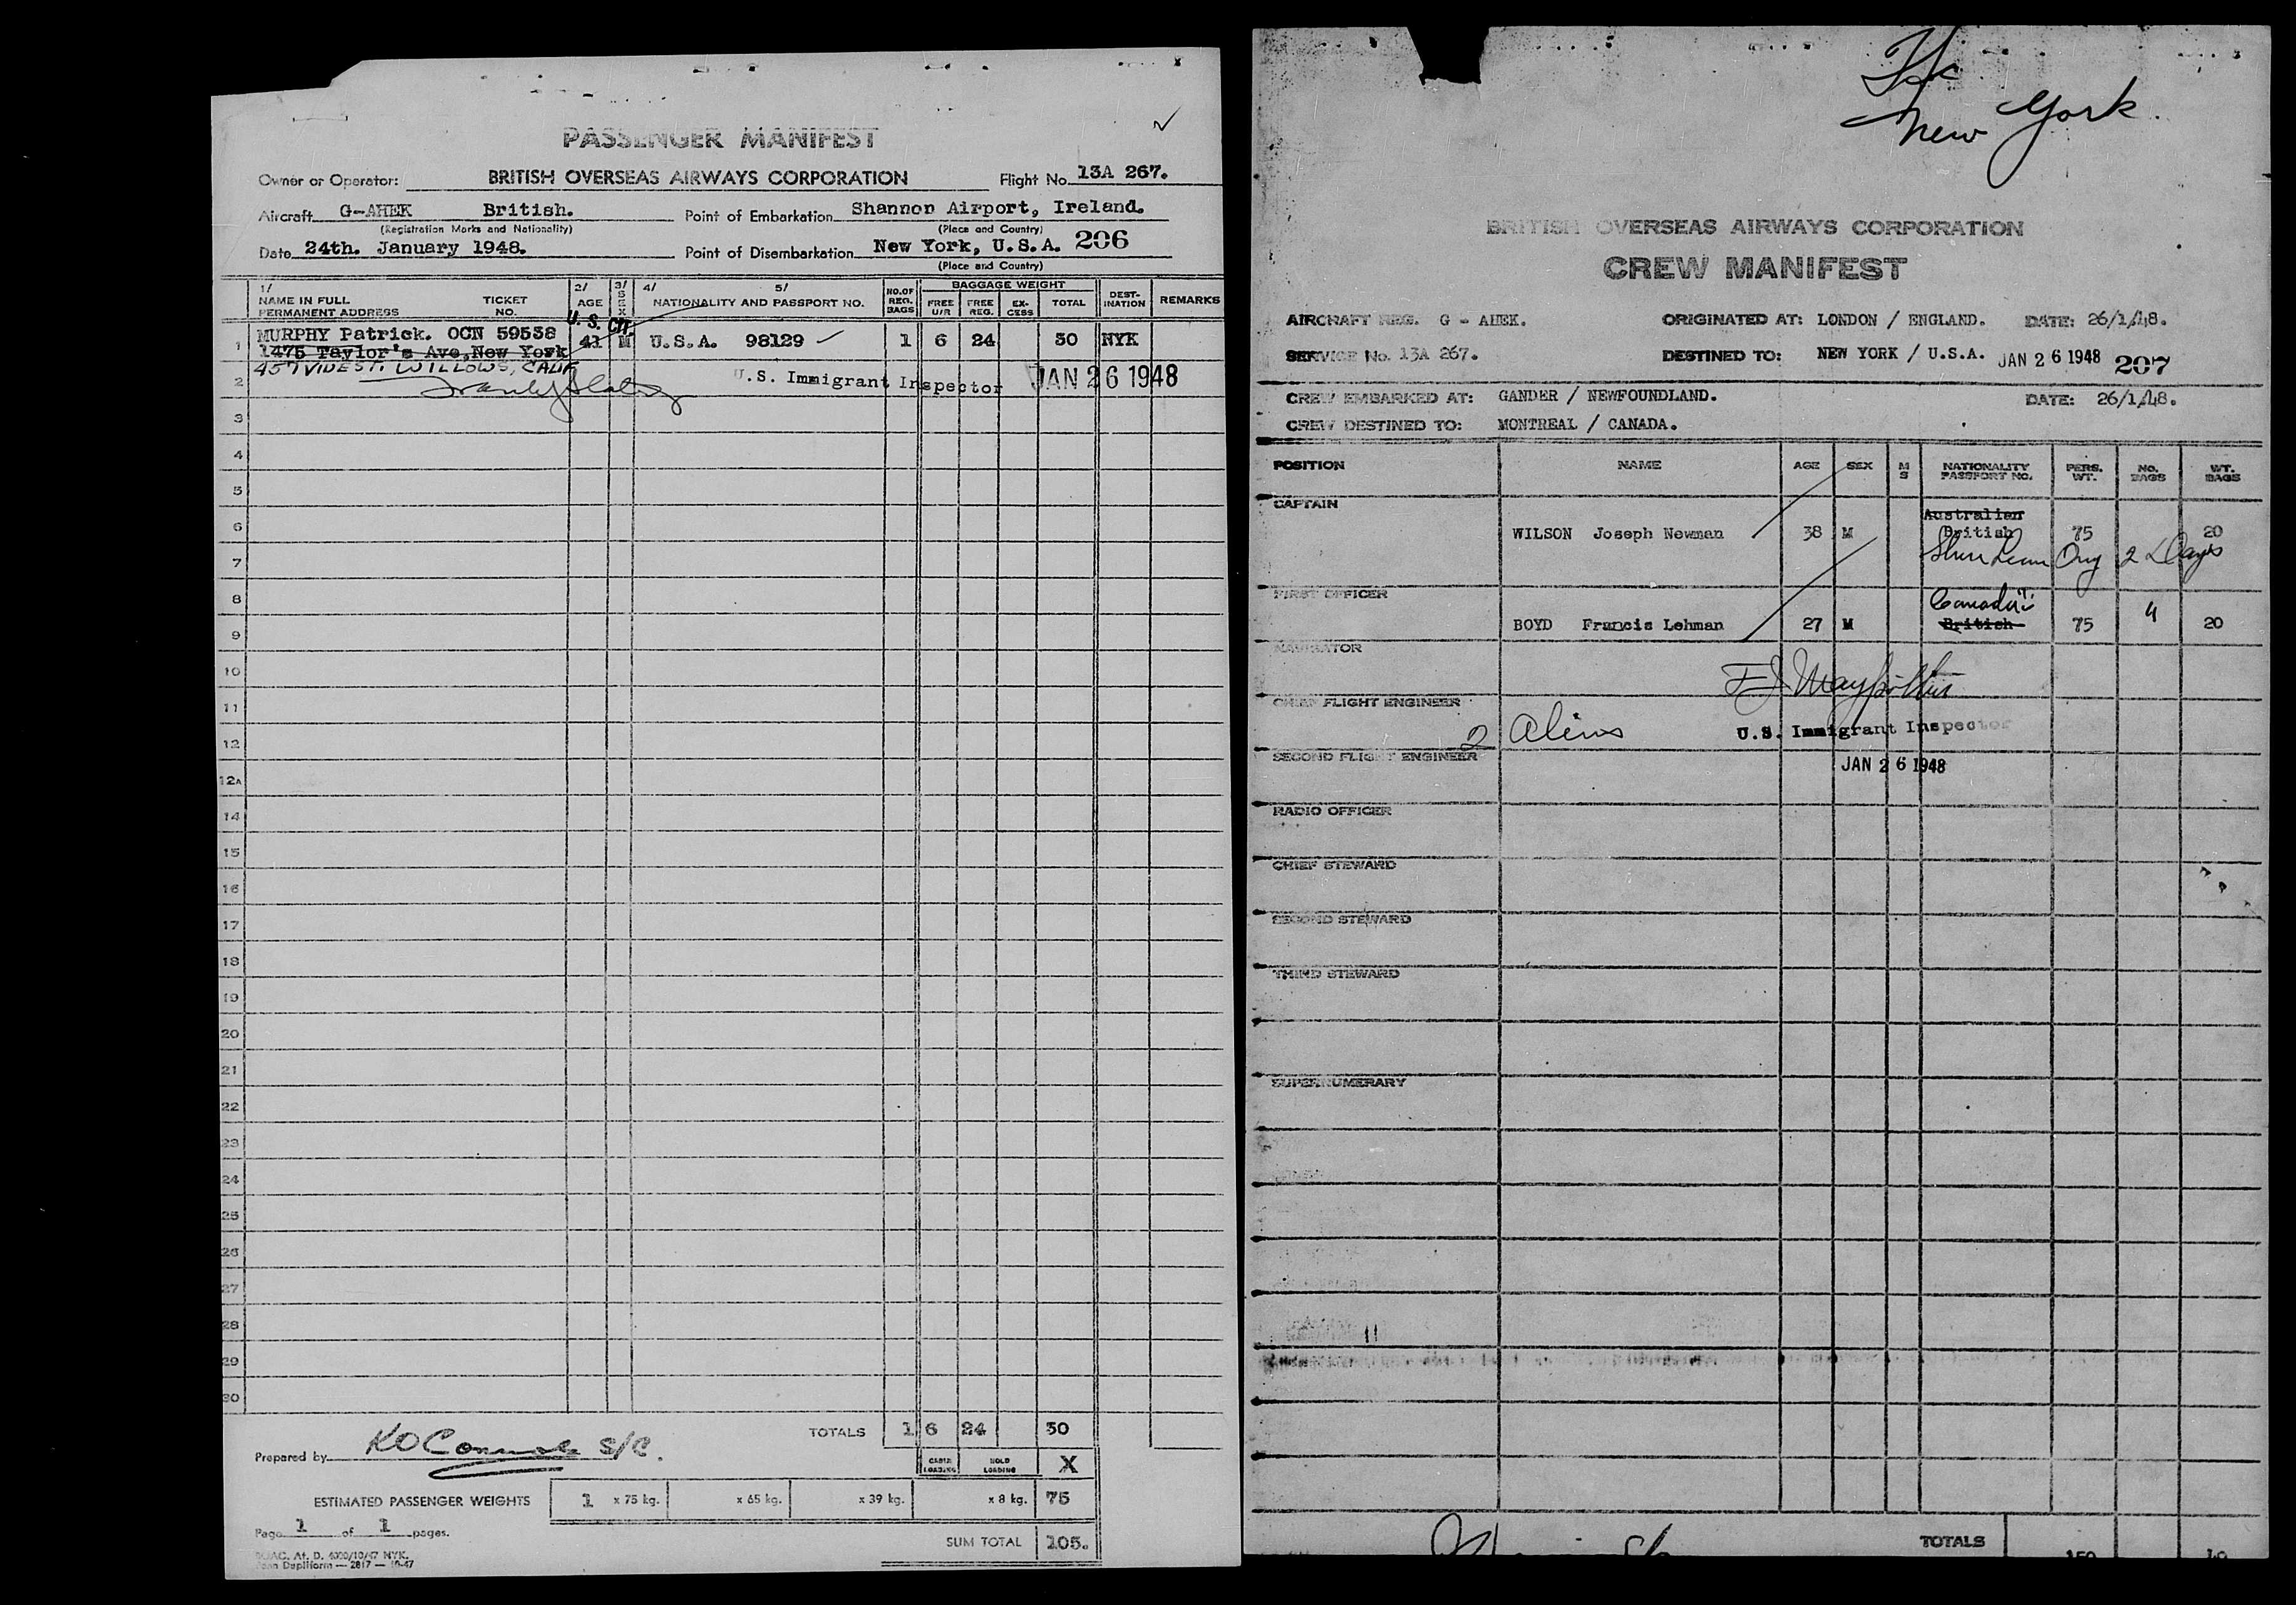 ✓
PASSENGER MANIFEST
Owner or Operator: BRITISH OVERSEAS AIRWAYS CORPORATION Flight No. 13A 267.
Aircraft G-AHEK British. Point of Embarkation Shannon Airport, Ireland.
(Registration Marks and Nationality) (Place and Country)
Date 24th. January 1948. Point of Disembarkation New York, U.S.A. 206
(Place and Country)
1/ NAME IN FULL PERMANENT ADDRESS TICKET NO. 2/ AGE 3/ SEX 4/ 5/ NATIONALITY AND PASSPORT NO. NO. OF REG. BAGS BAGGAGE WEIGHT FREE U/R FREE REG. EX-CESS TOTAL DEST-INATION REMARKS
U.S. CIT.
1 MURPHY Patrick. OCN 59538 41 M U.S.A. 98129 1 6 24 30 NYK
1475 Taylor's Ave, New York
WILLOWS, CALIF
2 U.S. Immigrant Inspector JAN 26 1948
3
4
5
6
7
8
9
10
11
12
12A
14
15
16
17
18
19
20
21
22
23
24
25
26
27
28
29
30
TOTALS 1 6 24 30
Prepared by S/C.
CABIN LOADING HOLD LOADING X
ESTIMATED PASSENGER WEIGHTS 1 x 75 kg. x 65 kg. x 39 kg. x 8 kg. 75
Page 1 of 1 pages.
SUM TOTAL 105.
BOAC. At. D. 4000/10/47 NYK.
Dupliform — 2817 — 10-47
New York.
BRITISH OVERSEAS AIRWAYS CORPORATION
CREW MANIFEST
AIRCRAFT REG. G - AHEK. ORIGINATED AT: LONDON / ENGLAND. DATE: 26/1/48.
SERVICE No. 13A 267. DESTINED TO: NEW YORK / U.S.A. JAN 26 1948 207
CREW EMBARKED AT: GANDER / NEWFOUNDLAND. DATE: 26/1/48.
CREW DESTINED TO: MONTREAL / CANADA.
POSITION NAME AGE SEX M S NATIONALITY PASSPORT NO. PERS. WT. NO. BAGS WT. BAGS
CAPTAIN
Australian
WILSON Joseph Newman 38 M British 75 20
2 Days
FIRST OFFICER
BOYD Francis Lehman 27 M British 75 4 20
NAVIGATOR
CHIEF FLIGHT ENGINEER
2 Aliens U.S. Immigrant Inspector
SECOND FLIGHT ENGINEER
JAN 26 1948
RADIO OFFICER
CHIEF STEWARD
SECOND STEWARD
THIRD STEWARD
SUPERNUMERARY
TOTALS